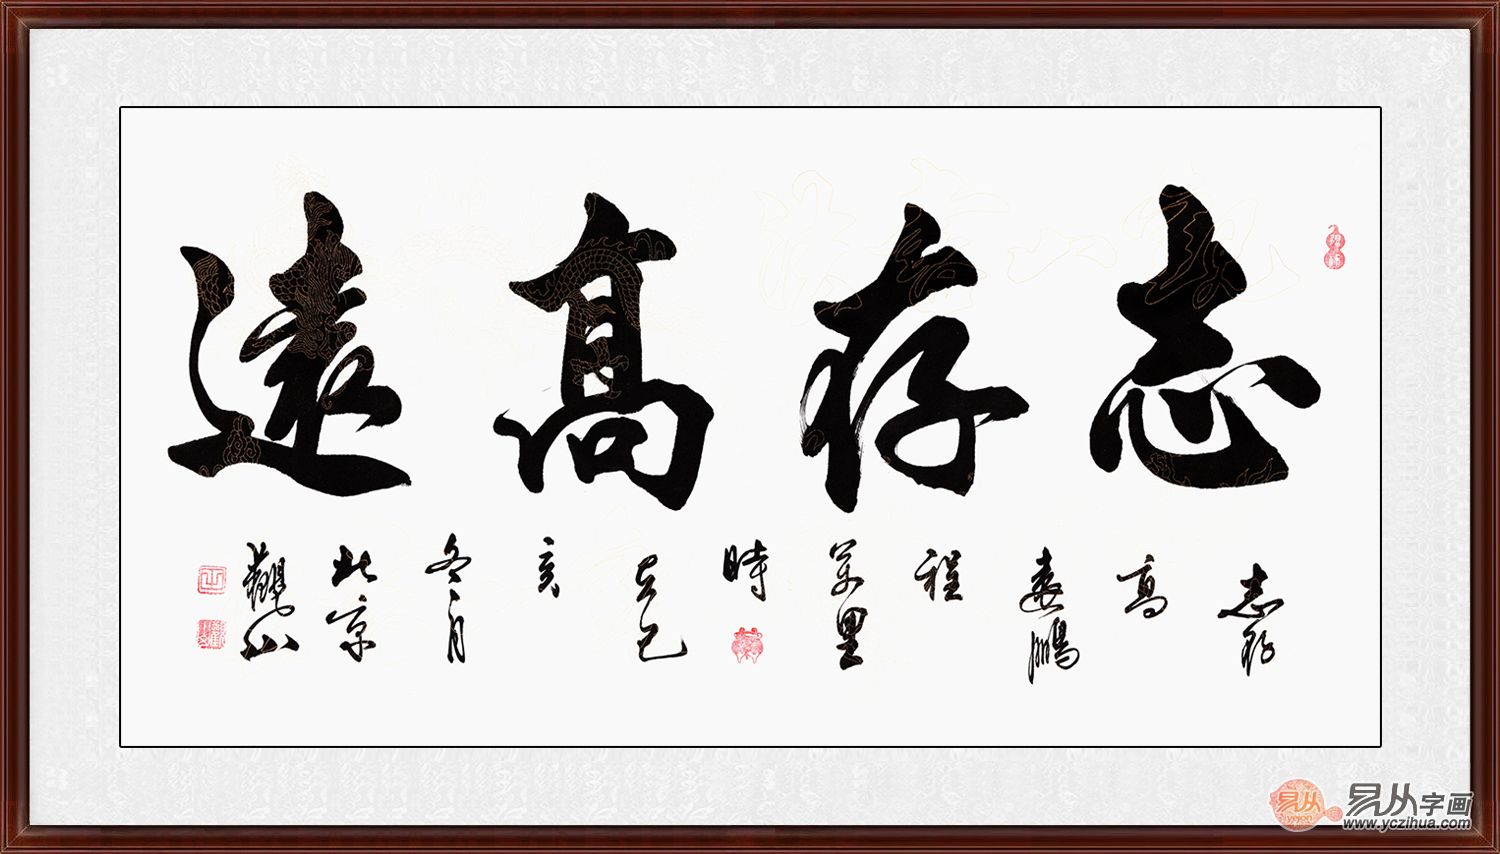 志存高遠
志存
高
遠鵬
程
萬里
時
在己
亥
冬月
北京
觀山
易从
易从字画
www.yczihua.com